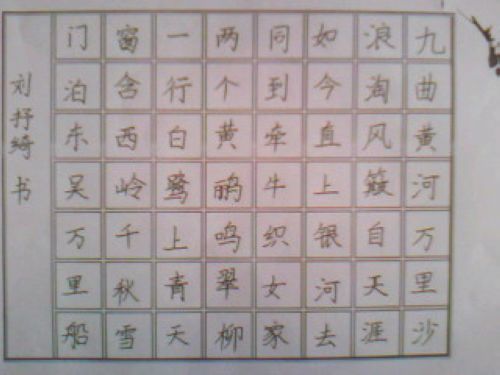 九曲黄河万里沙
浪淘风簸自天涯
如今直上银河去
同到牵牛织女家
两个黄鹂鸣翠柳
一行白鹭上青天
窗含西岭千秋雪
门泊东吴万里船
刘抒绮书